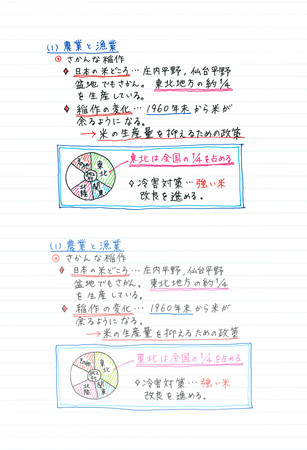 (1) 農業と漁業
⊙ さかんな稲作
◆ 日本の米どころ… 庄内平野, 仙台平野
盆地でもさかん。東北地方の約1/4
を生産している。
◆ 稲作の変化… 1960年末から米が
余るようになる。
→ 米の生産量を抑えるための政策
東北は全国の1/4を占める
◇ 冷害対策… 強い米
改良を進める。
東北
関東
北陸
(1) 農業と漁業
⊙ さかんな稲作
◆ 日本の米どころ… 庄内平野, 仙台平野
盆地でもさかん。東北地方の約1/4
を生産している。
◆ 稲作の変化… 1960年末から米が
余るようになる。
→ 米の生産量を抑えるための政策
東北は全国の1/4を占める
◇ 冷害対策… 強い米
改良を進める。
東北
関東
北陸